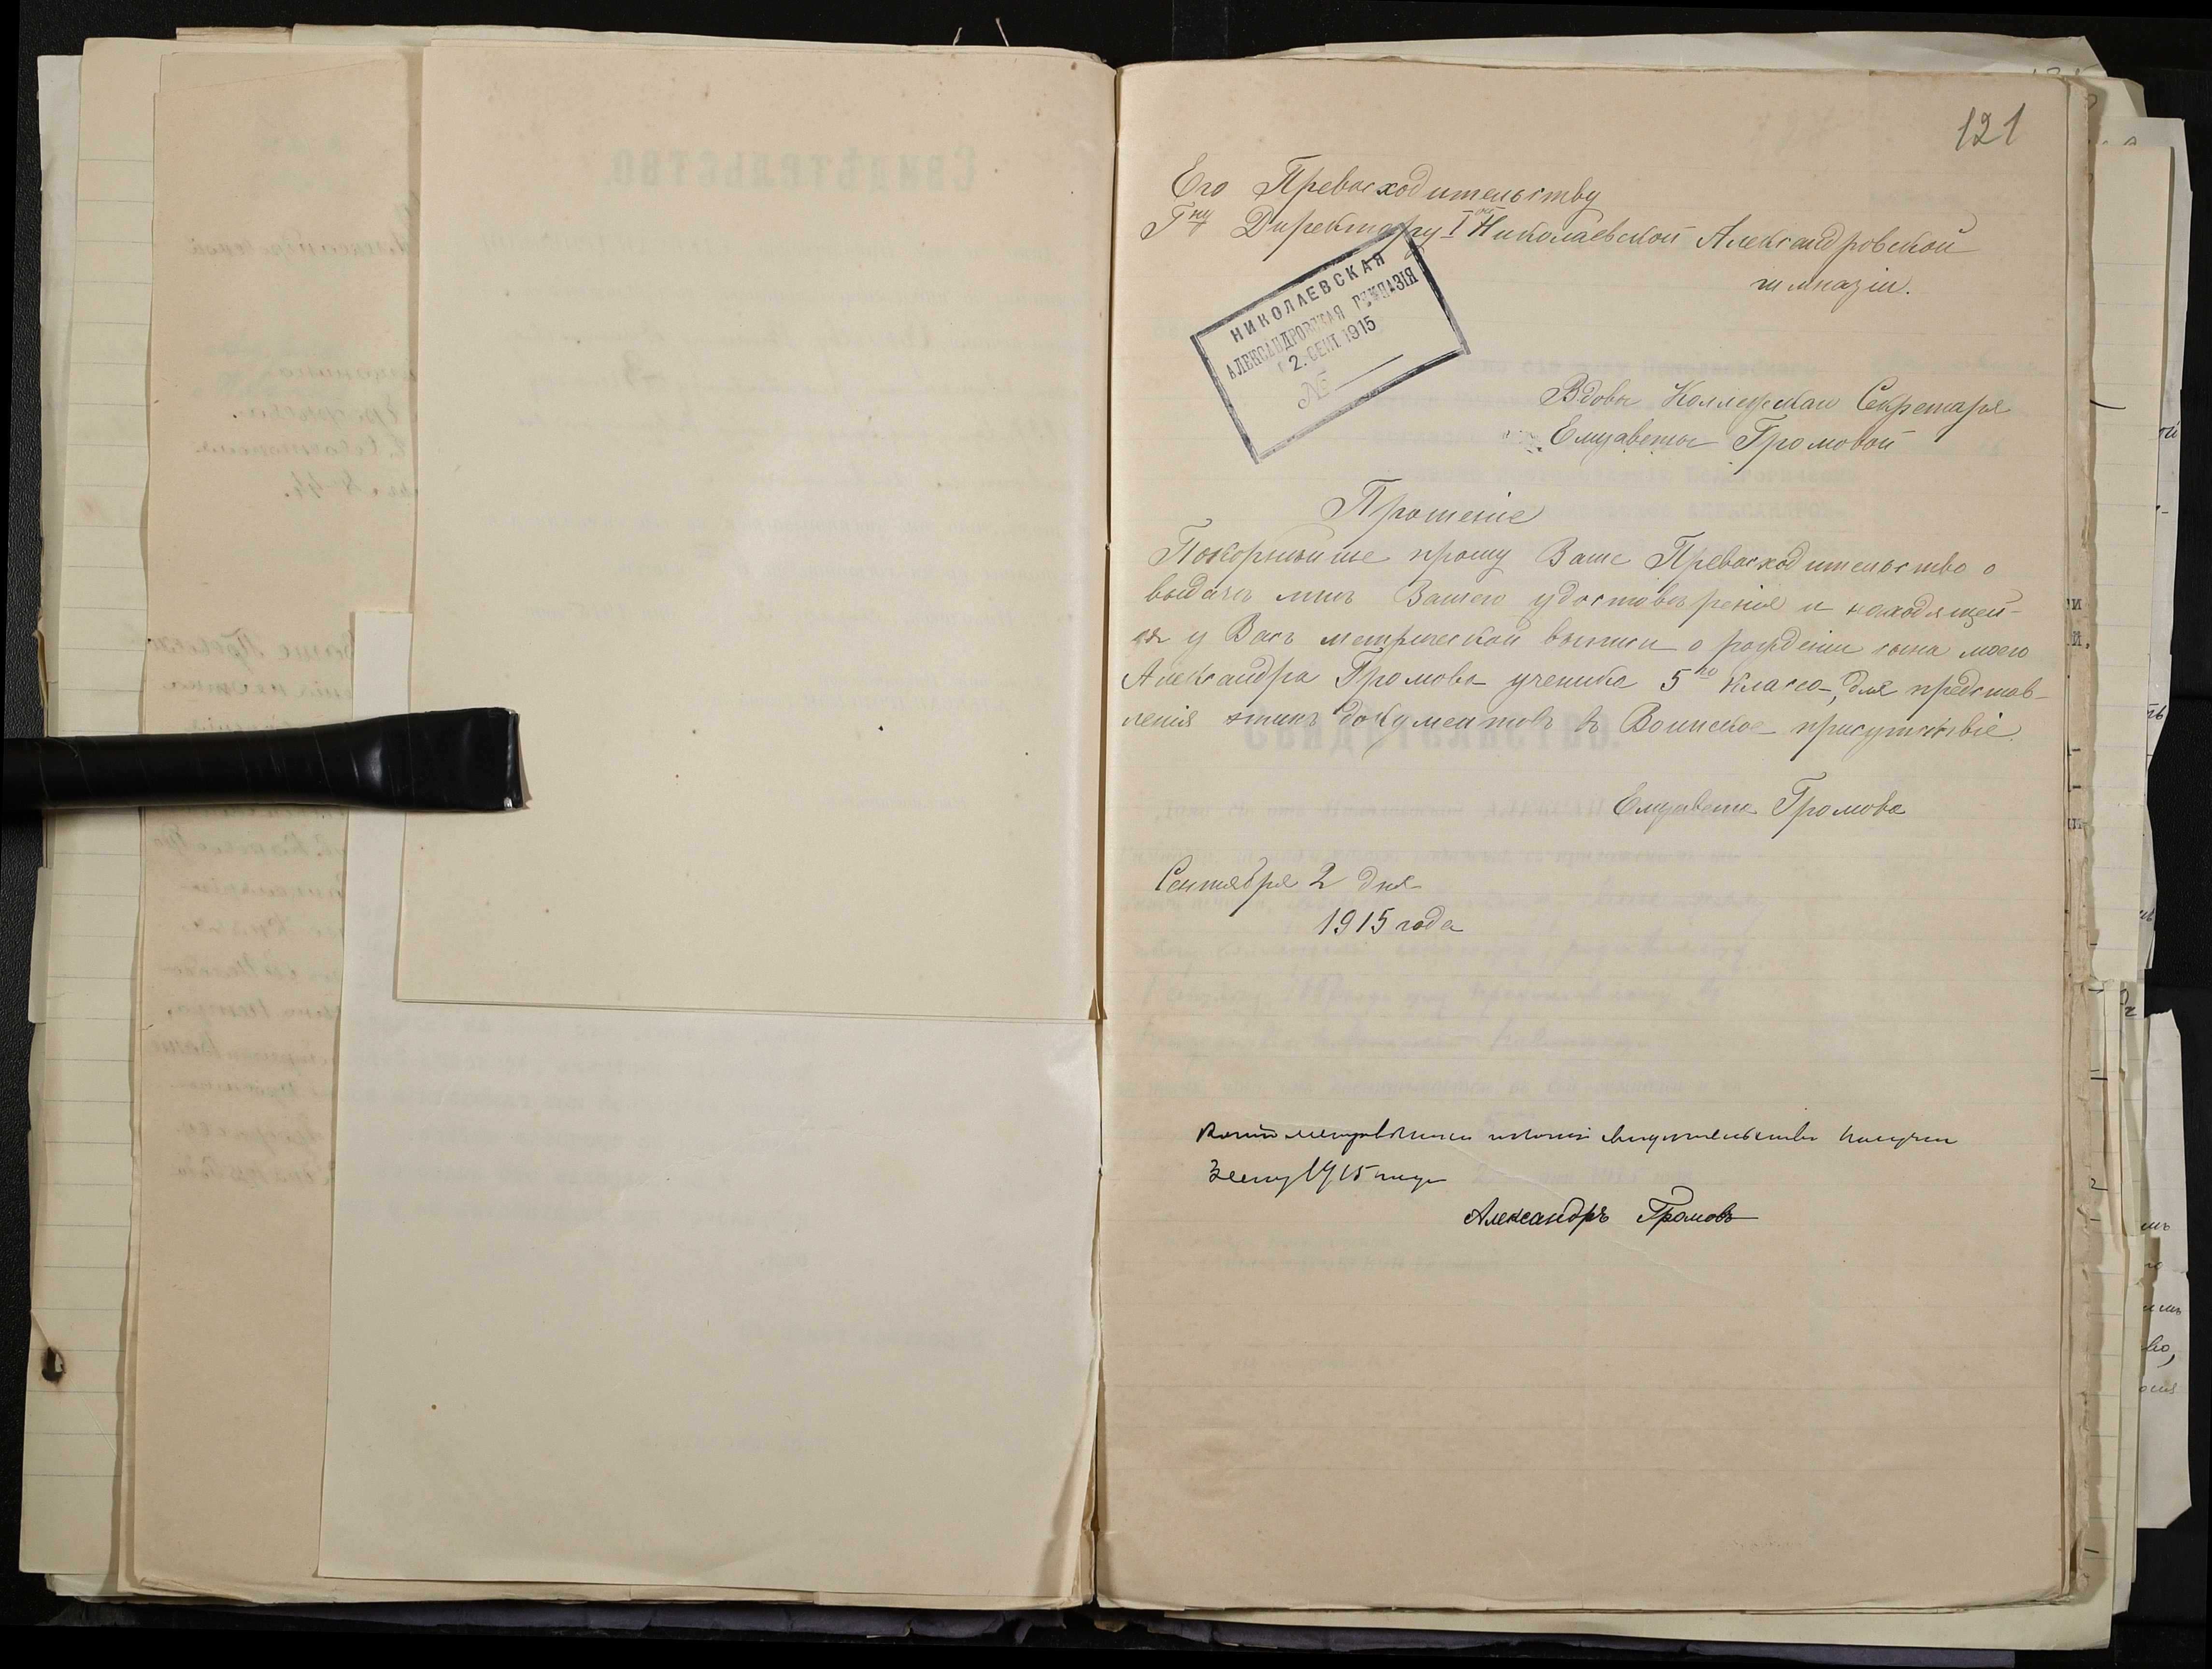 121
Его Превосходительству
Гну Директору Iой Николаевской Александровской
гимназіи.
НИКОЛАЕВСКАЯ
АЛЕКСАНДРОВСКАЯ ГИМНАЗІЯ
2. СЕНТ. 1915
№
Вдовы Коллежскаго Секретаря
Елизаветы Громовой
Прошеніе
Покорнѣйше прошу Ваше Превосходительство о
выдачѣ мнѣ Вашего удостовѣренія и находящей-
ся у Васъ метрической выписи о рожденіи сына моего
Александра Громова ученика 5го класса, для представ-
ленія этихъ документовъ въ Воинское присутствіе.
Елизавета Громова
Сентября 2 дня
1915 года
получил
1915 года
Александръ Громовъ